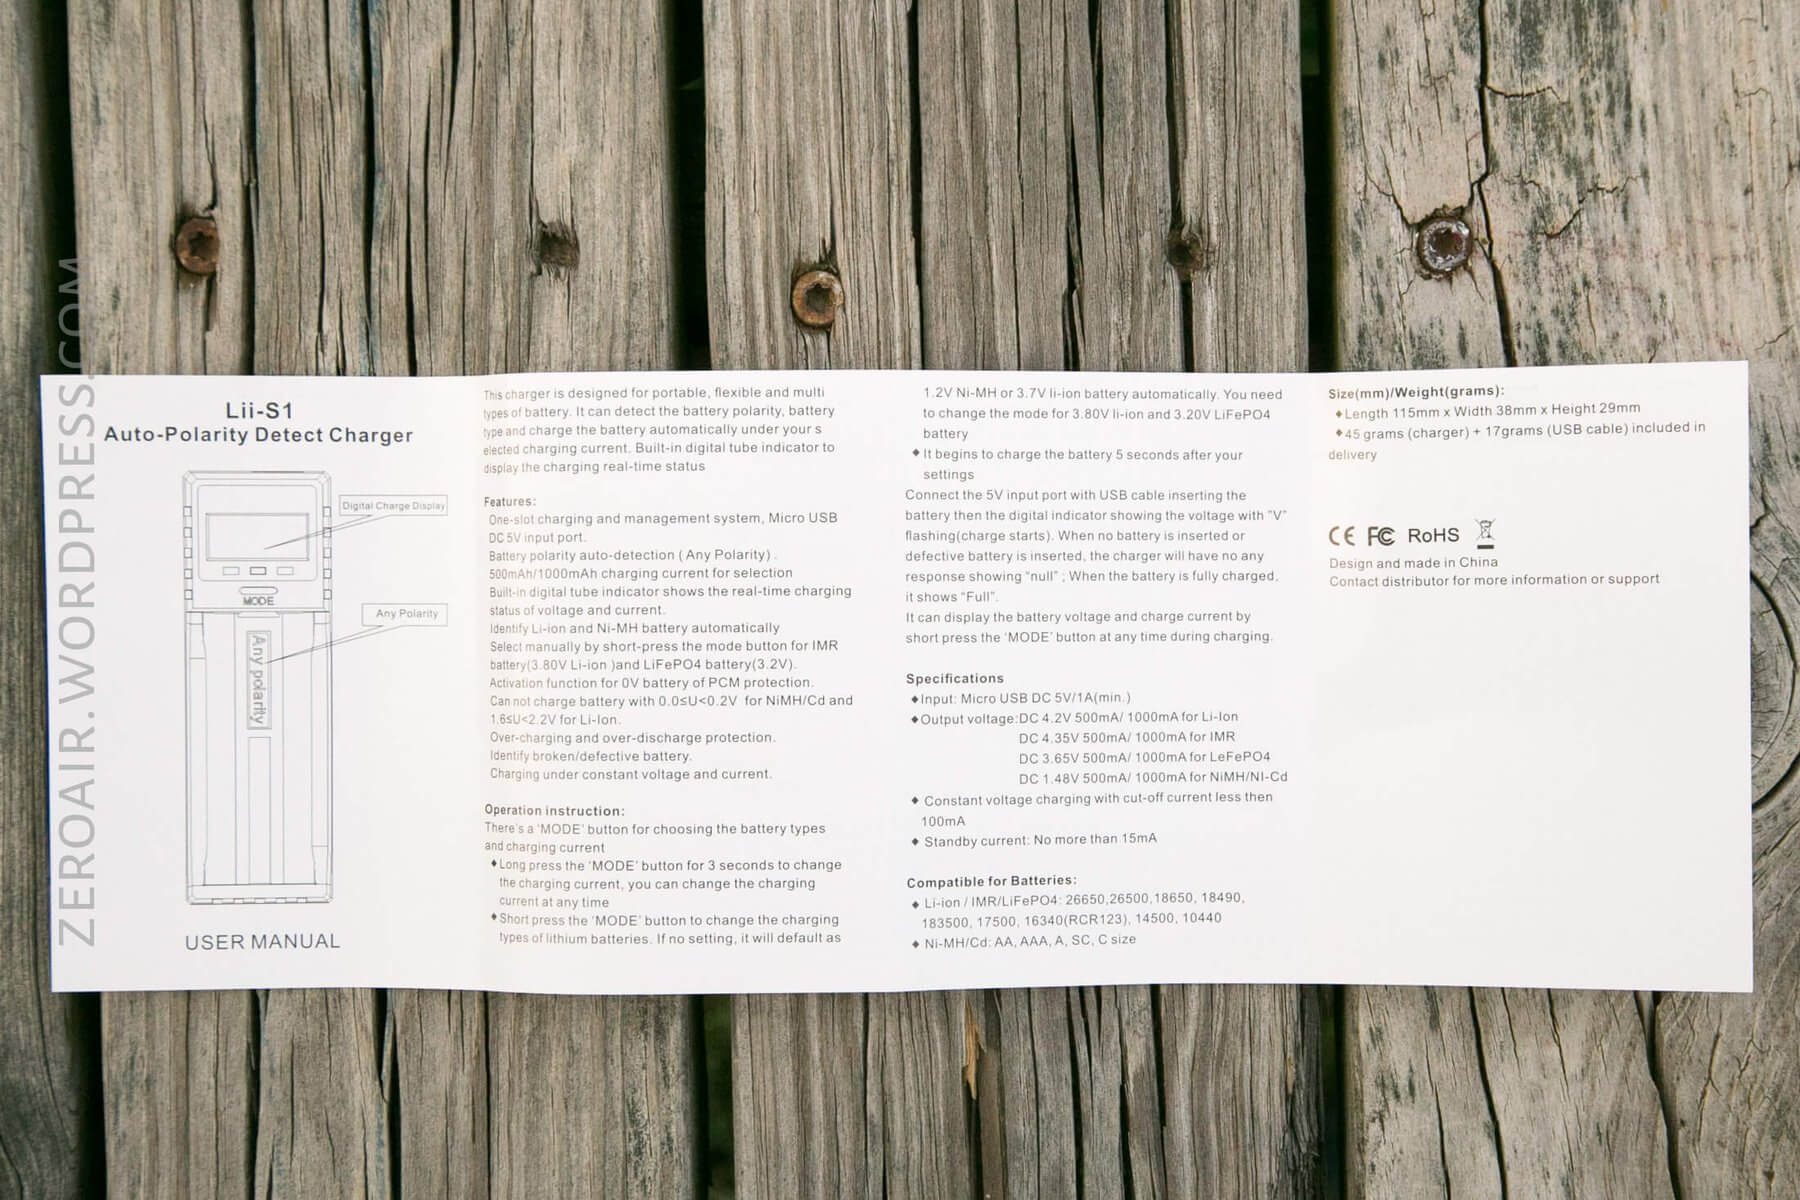 ZEROAIR.WORDPRESS.COM
Lii-S1
Auto-Polarity Detect Charger
Digital Charge Display
MODE
Any Polarity
Any polarity
USER MANUAL
This charger is designed for portable, flexible and multi
types of battery. It can detect the battery polarity, battery
type and charge the battery automatically under your s
elected charging current. Built-in digital tube indicator to
display the charging real-time status
Features:
One-slot charging and management system, Micro USB
DC 5V input port.
Battery polarity auto-detection ( Any Polarity) .
500mAh/1000mAh charging current for selection
Built-in digital tube indicator shows the real-time charging
status of voltage and current.
Identify Li-ion and Ni-MH battery automatically
Select manually by short-press the mode button for IMR
battery(3.80V Li-ion )and LiFePO4 battery(3.2V).
Activation function for 0V battery of PCM protection.
Can not charge battery with 0.0≤U<0.2V for NiMH/Cd and
1.6≤U<2.2V for Li-Ion.
Over-charging and over-discharge protection.
Identify broken/defective battery.
Charging under constant voltage and current.
Operation instruction:
There's a 'MODE' button for choosing the battery types
and charging current
◆Long press the 'MODE' button for 3 seconds to change
the charging current, you can change the charging
current at any time
◆Short press the 'MODE' button to change the charging
types of lithium batteries. If no setting, it will default as
1.2V Ni-MH or 3.7V li-ion battery automatically. You need
to change the mode for 3.80V li-ion and 3.20V LiFePO4
battery
◆It begins to charge the battery 5 seconds after your
settings
Connect the 5V input port with USB cable inserting the
battery then the digital indicator showing the voltage with "V"
flashing(charge starts). When no battery is inserted or
defective battery is inserted, the charger will have no any
response showing "null" ; When the battery is fully charged,
it shows "Full".
It can display the battery voltage and charge current by
short press the 'MODE' button at any time during charging.
Specifications
◆Input: Micro USB DC 5V/1A(min.)
◆Output voltage:DC 4.2V 500mA/ 1000mA for Li-Ion
DC 4.35V 500mA/ 1000mA for IMR
DC 3.65V 500mA/ 1000mA for LeFePO4
DC 1.48V 500mA/ 1000mA for NiMH/NI-Cd
◆ Constant voltage charging with cut-off current less then
100mA
◆ Standby current: No more than 15mA
Compatible for Batteries:
◆ Li-ion / IMR/LiFePO4: 26650,26500,18650, 18490,
183500, 17500, 16340(RCR123), 14500, 10440
◆ Ni-MH/Cd: AA, AAA, A, SC, C size
Size(mm)/Weight(grams):
◆Length 115mm x Width 38mm x Height 29mm
◆45 grams (charger) + 17grams (USB cable) included in
delivery
CE FC RoHS
Design and made in China
Contact distributor for more information or support